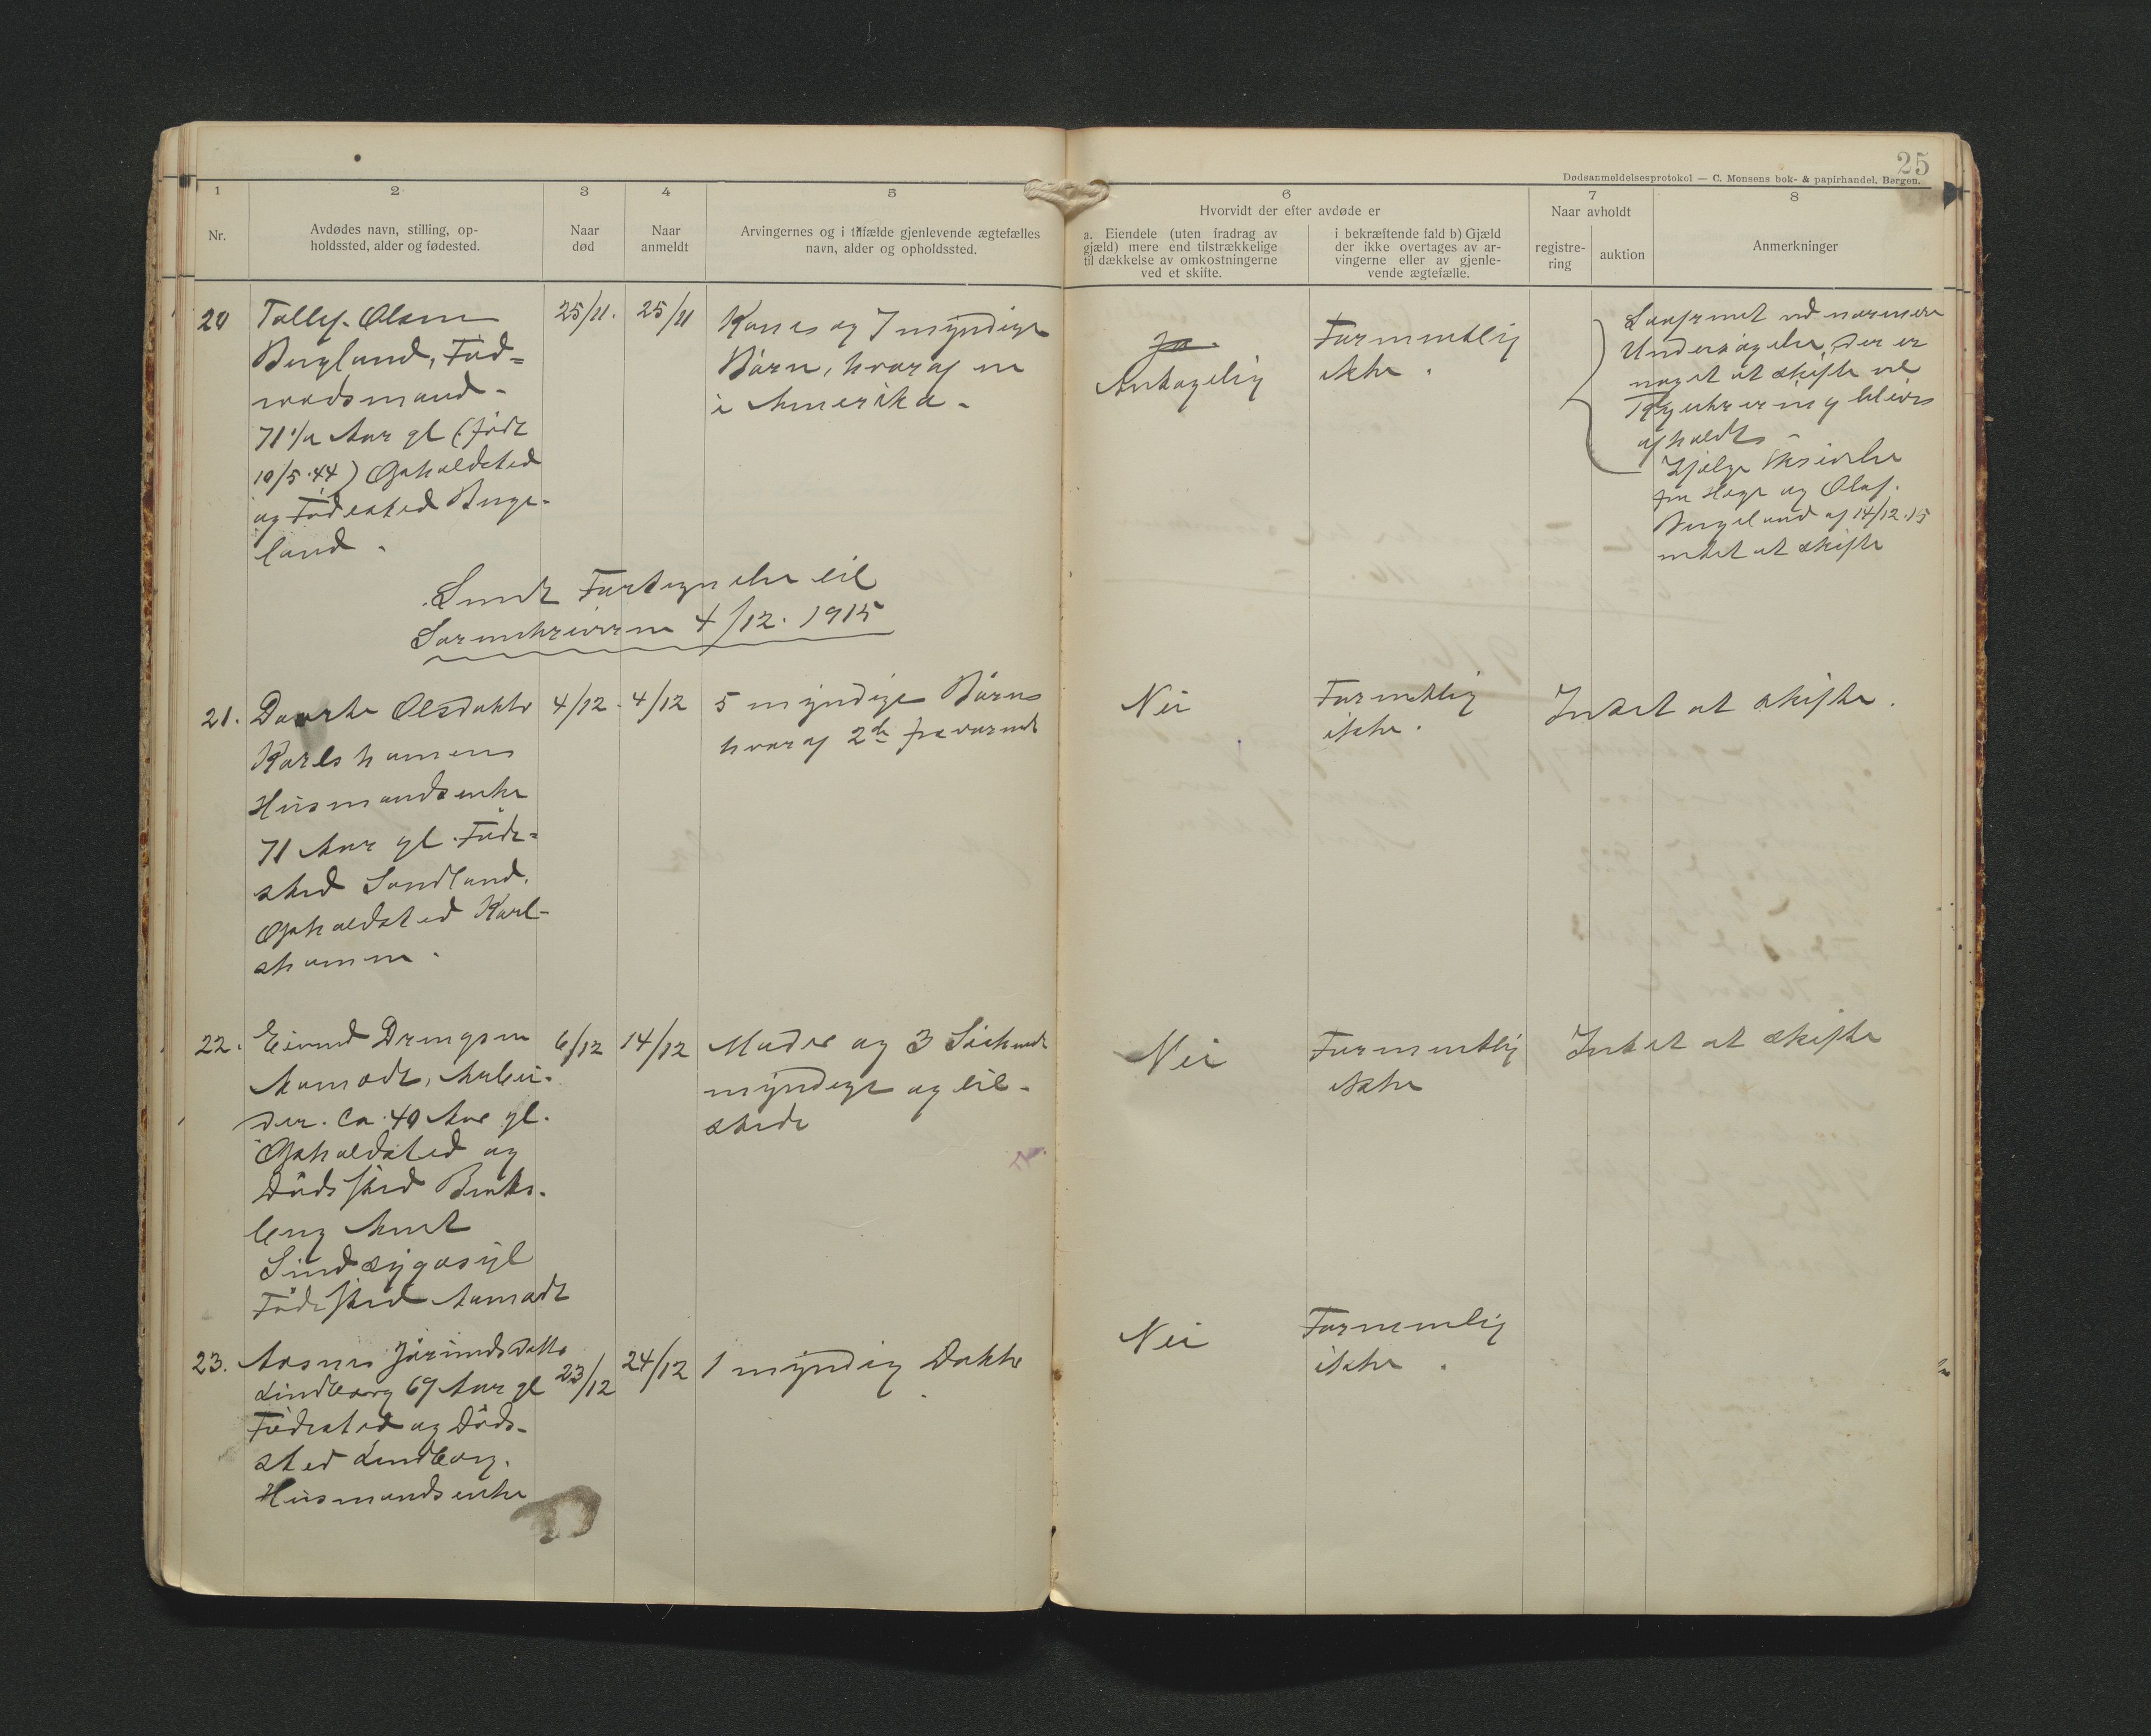 25
Dødsanmeldelsesprotokol — C. Monsens bok- & papirhandel, Bergen.
1
2
3
4
5
6
7
8
Nr.
Avdødes navn, stilling, op-
holdssted, alder og fødested.
Naar
død
Naar
anmeldt
Arvingernes og i tilfælde gjenlevende ægtefælles
navn, alder og opholdssted.
Hvorvidt der efter avdøde er
a. Eiendele (uten fradrag av
gjæld) mere end tilstrækkelige
til dækkelse av omkostningerne
ved et skifte.
i bekræftende fald b) Gjæld
der ikke overtages av ar-
vingerne eller av gjenle-
vende ægtefælle.
Naar avholdt
registre-
ring
auktion
Anmerkninger
20
Tollef Olsen
Bergland, Fød-
raadsmand.
71 1/2 Aar gl (født
10/5.44) Opholdsted
og Fødested Berge-
land.
25/11.
25/11
Kone og 7 myndige
Børn, hvoraf en
i Amerika.
Ja.
Antagelig
Formentlig
ikke.
Saafremt ved nærmere
Undersøgelse, der er
noget at skifte vil
Registrering blive
afholdt
Ifølge Skrivelse
fra Hege og Olaf
Bergeland af 14/12.15
intet at skifte
Sendt Fortegnelse til
Sorenskriveren 4/12. 1915
21.
Daarte Olsdatter
Karlshamen
Husmandsenke
71 Aar gl. Føde-
sted Sandland.
Opholdsted Karl-
shamen.
4/12.
4/12
5 myndige Børn
hvoraf 2de fraværende
Nei
Formentlig
ikke.
Intet at skifte.
22.
Eivind Drengsen
Aamodt, Arbei-
der. Ca. 40 Aar gl.
Opholdsted og
Dødssted
Amt
Sindsygasyl
Fødested Aamodt
6/12
14/12
Moder og 3 Søskende
myndige og til-
stede
Nei
Formentlig
ikke
Intet at skifte
23.
Aasne Jørundsdatter
Lindberg 69 Aar gl
Fødested og Døds-
sted Lindberg.
Husmandsenke
23/12
24/12
1 myndig Datter
Nei
Formentlig
ikke.